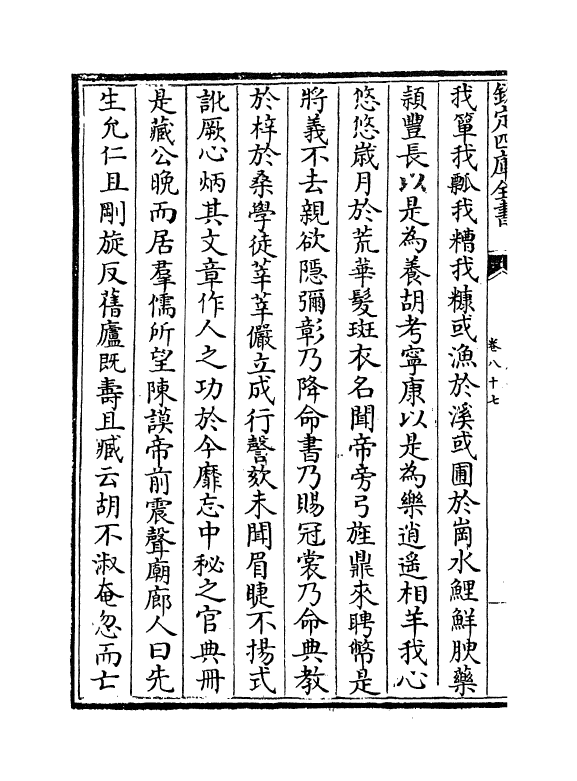 欽定四庫全書
卷八十七
我簞我瓢我糟我糠或漁於溪或圃於崗水鯉鮮腴藥
頴豐長以是為養胡考寧康以是為樂逍遥相羊我心
悠悠歳月於荒華髮斑衣名聞帝旁弓旌鼎來聘幣是
將義不去親欲隱彌彰乃降命書乃賜冠裳乃命典教
於梓於桑學徒莘莘儼立成行謦欬未聞眉睫不揚式
訛厥心炳其文章作人之功於今靡忘中秘之官典冊
是藏公晚而居羣儒所望陳謨帝前震聲廟廊人曰先
生允仁且剛旋反舊廬既壽且臧云胡不淑奄忽而亡